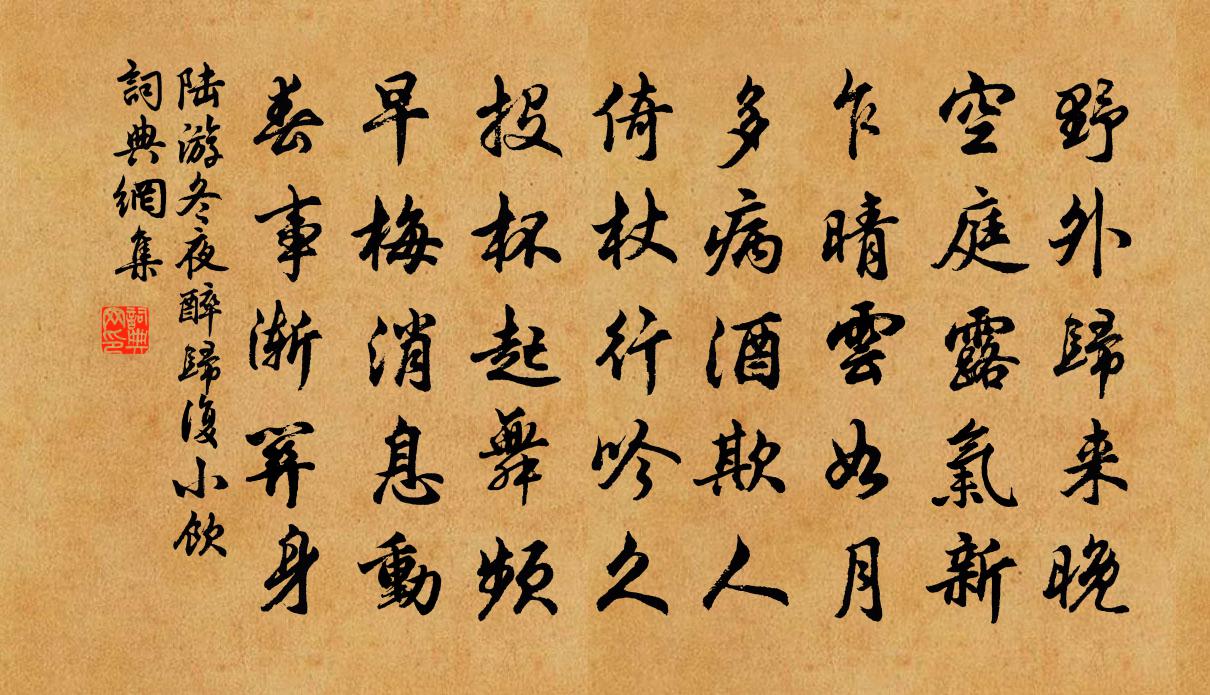 野外歸来晚
空庭露氣新
乍晴雲如月
多病酒欺人
倚杖行吟久
投杯起舞頻
早梅消息動
春事漸關身
陸游冬夜醉歸復小飲
詞典網集
詞典网印